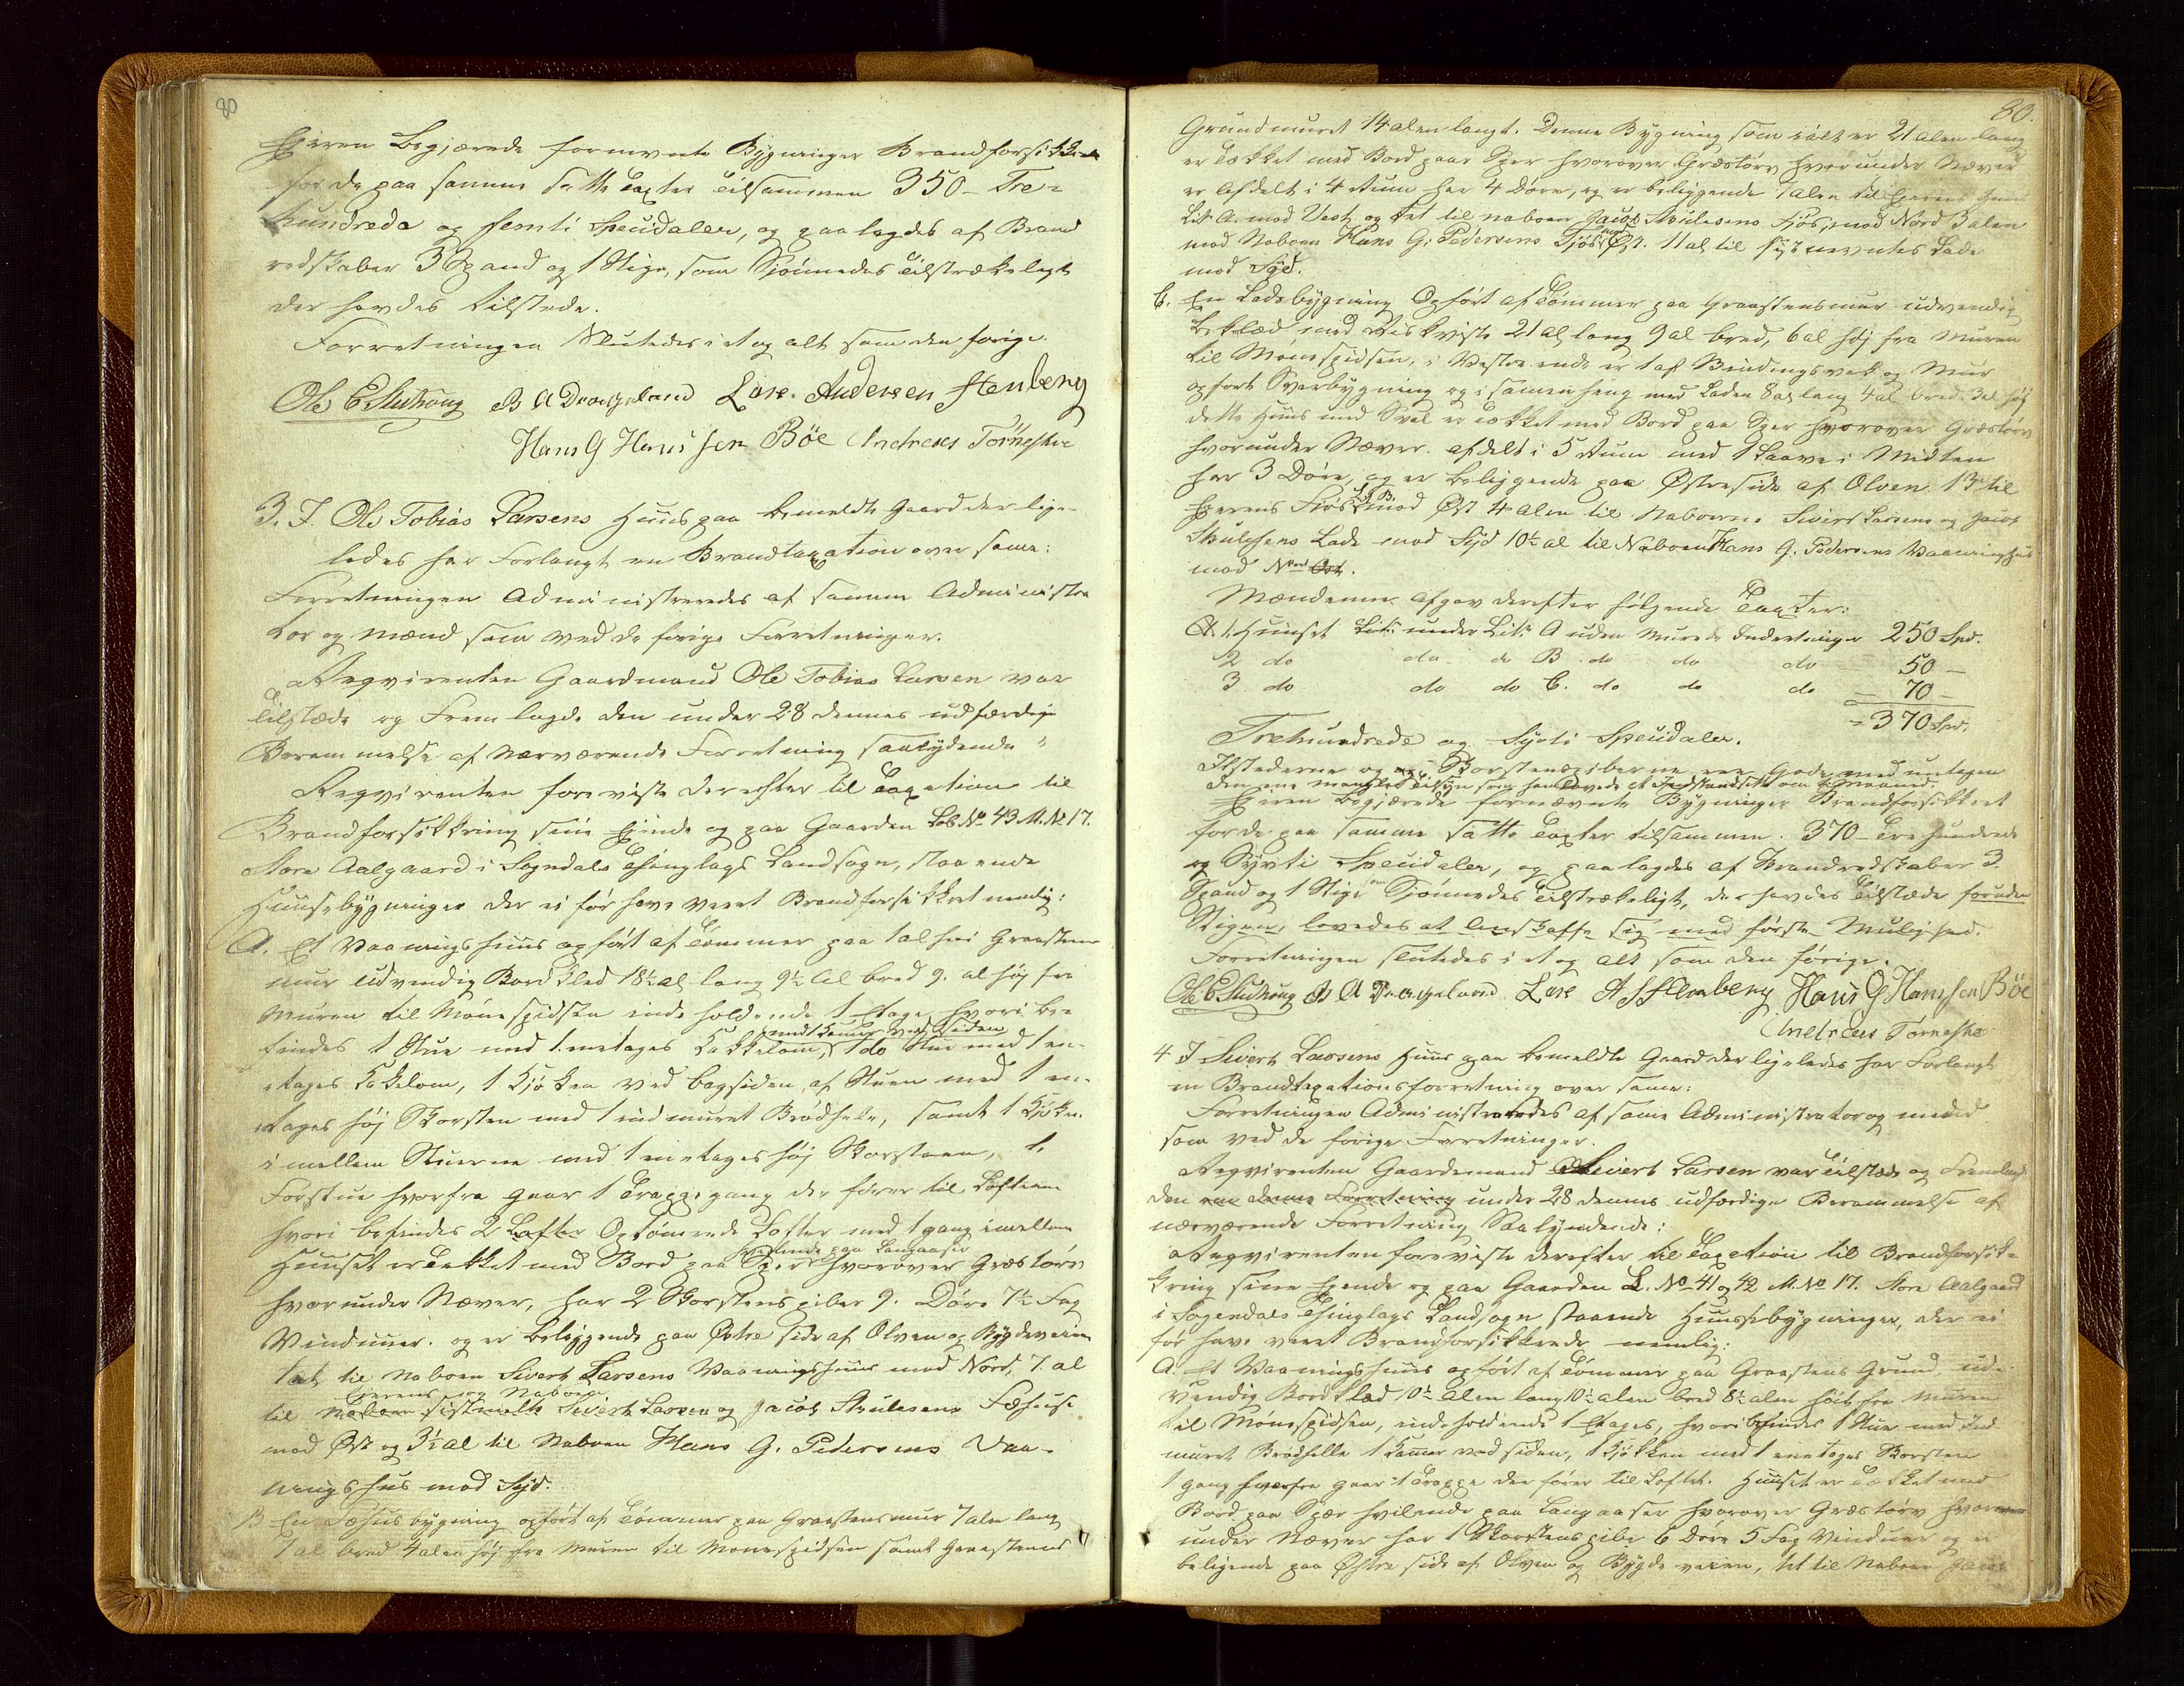 80
Eieren begjærede fornevnte Bygninger Brandforsikkrede
for de paa samme satte Taxter tilsammen 350 - Tre-
hundrede og femti Specidaler, og paalagdes af Brand
redskaber 3 Spand og 1 Stige, som Skjönnedes tilstrækeligt
der havdes tilstede.
Forretningen Sluttedes i et og alt som den forige.
Ole E Skutvig B A Drageland Lars. Andersen Stenberg
Hans G Hanssen Böe Andreas Törreskee
3. I. Ole Tobias Larsens Huus paa bemeldte Gaard der lige-
ledes har Forlangt en Brandtaxation over samme:
Forretningen Administreredes af samme Administra
tor og mænd som ved de forige Forretninger.
Reqvirenten Gaardmand Ole Tobias Larsen var
tilstæde og Fremlagde den under 28 dennes udfærdige
Berammelse af nærværende Forretning saalydende "
Reqvirenten foreviste derefter til Taxation til
Brandforsikkring sine Eiende og paa Gaarden Löb No 43 M. No 17.
Store Aalgaard i Sogndals Thinglags Landsogn, staaende
Huusebygninger der ei för have været Brandforsikkret nemlig:
A. Et Vaaningshuus opfört af Tömmer paa 1 al höi Graasteens
mur udvendig Bordklæd 18½ al lang 9½ al bred 9. al höj fra
Muren til Mönespidsen indeholdende 1 Etage hvori be-
findes 1 Stue med 1. enetages Kakkelovn, med 1 Kamer ved Siden 1 do Stue med 1 en-
etages Kakelovn, 1 Kjöken ved bagsiden af Stuen med 1 en-
etages höj Skorsten med 1 indmuret Brödhelle, samt 1 Kjöken
i mellem Stuerne med 1 enetages höj Skorsteen, 1.
Forstue hvorfra gaar 1 Trappegang der förer til Lofterne
hvori befindes 2 Lofter Optömrede Lofter med 1 gang imellem
Huuset er Tækket med Bord paa Sper hvilende paa Langaaser hvorover Græstörv
hvorunder Næver, har 2 Skorstenspiber 9. Döre 7½ Fag
Vinduuer. og er beliggende paa Østre side af Elven og Bygdeveien
tæt til Naboen Sivert Larsens Vaaningshuus mod Nord, 7. al
til Eierens og Naboen sistmelte Sivert Larsen og Jacob Skulesens Fæhuse
mod Øst og 3½ al til Naboen Hans G. Pedersens Vaa-
ningshus mod Syd.
B En Fæhusbygning opfört af Tömmer paa Graastensmur 7 alen lang
7 al bred 4 alen höj fra Muren til Mönespidsen samt Graasteens
80.
Grundmuret 14 alen langt. Denne Bygning som ialt er 21 alen lang
er Tækket med Bord paa Sper hvorover Græstörv hvorunder Næver
er Afdelt i 4 Rum har 4 Döre, og er beliggende 7 alen til Eierens Huus
Lit. A. mod Vest og tæt til naboen Jacob Skulesens Fjös, mod Nord 3 alen
mod Naboen Hans G. Pedersens Fjös mod Øst. 11 al til sidstnevntes Lade
mod Syd.
C. En Ladebygning Opfört af Tömmer paa Graastensmur udvendig
Beklæd med Riskviste 21 al lang 9 al bred, 6 al höj fra Muren
til Mönespidsen, i Vestre ende er 1 af Bindingsverk og Mur
opfört Sverbygning og i samenheng med Laden 8 al lang 4 al bred. 3 al höj
dette Huus med Sval er tækket med Bord paa Sper hvorover Græstörv
hvorunder Næver. afdelt i 5 Rum med 1 Laave i Midten
har 3 Döre, og er beliggende paa Østreside af Elven 13 til
Eierens Fjös Lit B. mod Øst 4 alen til Naboerne Sivert Larsens og Jacob
Skulesens Lade mod Syd 10½ al til Naboen Hans G. Pedersens Vaaningshus
mod Nord Øst.
Mændene Afgav derefter fölgende Taxter:
A. 1. Huuset Lit. under Lit. A uden Murede Indretninger 250 Spd.
2 do do. do B. do do do 50 -
3 do do do C. do do do = 70 -
= 370 Spd.
Trehundrede og Sytti Speciedaler.
Ilstederne og Skorstenspiberne var Gode med untagen
den ene manglet Eiern som han lovede at Istandsætte om 1 Maaned.
Eieren begjærede fornævnte Bygninger Brandforsikkret
for de paa samme satte Taxter tilsammen. 370 - Trehundrede
og Sytti Speciedaler, og paalagdes af Brandredskaber 3.
Spand og 1 Stige som Skjönnedes tilstrækeligt, der havdes tilstæde foruden
Stigen, lovedes at Anskaffe sig med förste Mulighed.
Forretningen sluttedes i et og alt som den förige.
Ole E Skutvig B A Drageland Lars A Stenberg Hans G Hanssen Böe
Andreas Törreske
4 I Sivert Larsens Huus paa bemeldte Gaard der ligeledes har Forlangt
en Brandtaxationsforretning over same:
Forretningen Administreredes af same Administrator og mænd
som ved de forige Forretninger.
Reqvirenten Gaardemand Sivert Larsen var tilstæde og Fremlagde
den under 28 dennes udfærdige Berammelse af
nærværende Forretning Saalydende:
Reqvirenten foreviste derefter til Taxation til Brandforsik-
kring sine Eiende og paa Gaarden L. No 41 og 42 M. No 17. Store Aalgaard
i Sogendals Thinglags Landsogn, staaende Huusebygninger, der ei
för have været Brandforsikkrede nemlig:
A. Et Vaaningshuus opfört af Tömmer paa Graastens Grund, ud-
vendig Bordklæd 10½ Alen lang 10½ alen bred 8½ alen höit fra Muren
til Mönespidsen, indeholdende 1 Etage, hvori befindes 1 Stue med Ind-
muret Brödhelle 1 Kamer ved siden, 1 Kjökken med 1 enetages Skorsten
1 gang hvorfra gaar 1 Trappe der förer til Loftet. Huuset er Tækket med
Bord paa Spær hvilende paa Langaaser hvorover Græstörv hvor
under Næver har 1 Skorstenspibe 6 Döre 5 Fag Vinduer og er
beligende paa Østre side af Elven og Bygdeveien, tet til Naboen Jacob